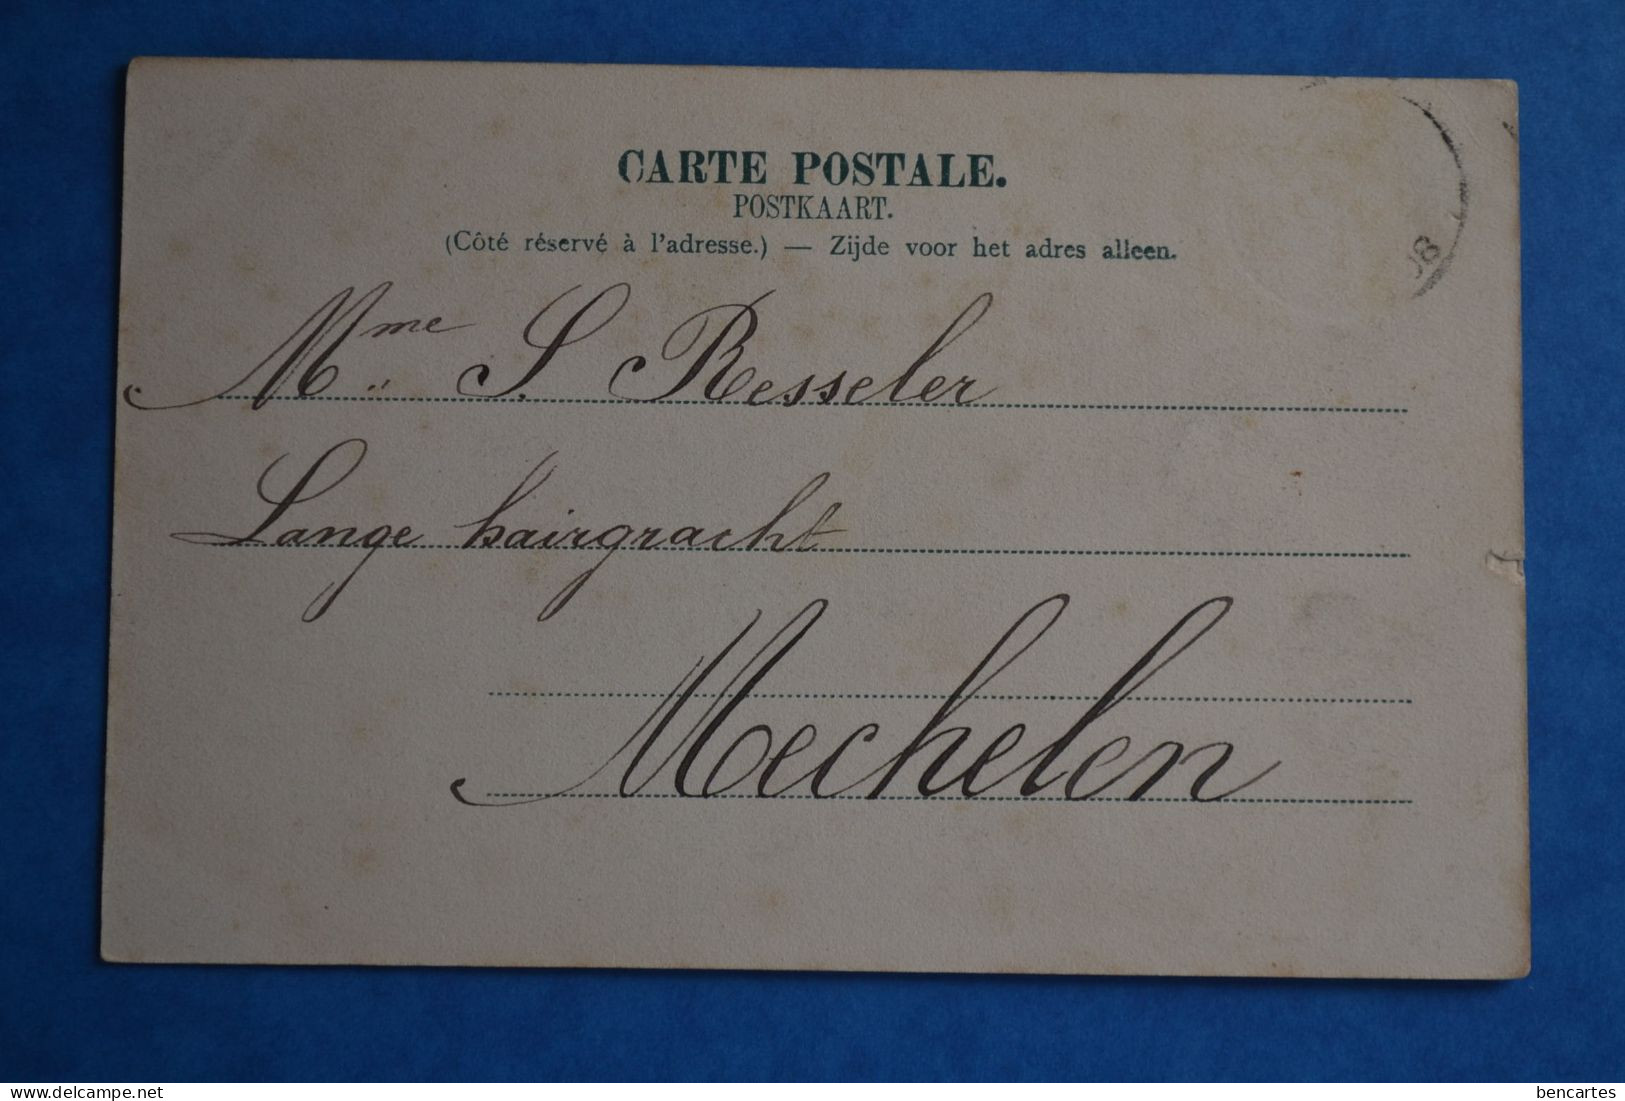 CARTE POSTALE.
POSTKAART.
(Côté réservé à l'adresse.) — Zijde voor het adres alleen.
Mme S. Resseler
Lange hairgracht
Mechelen
08
delcampe.net
bencartes